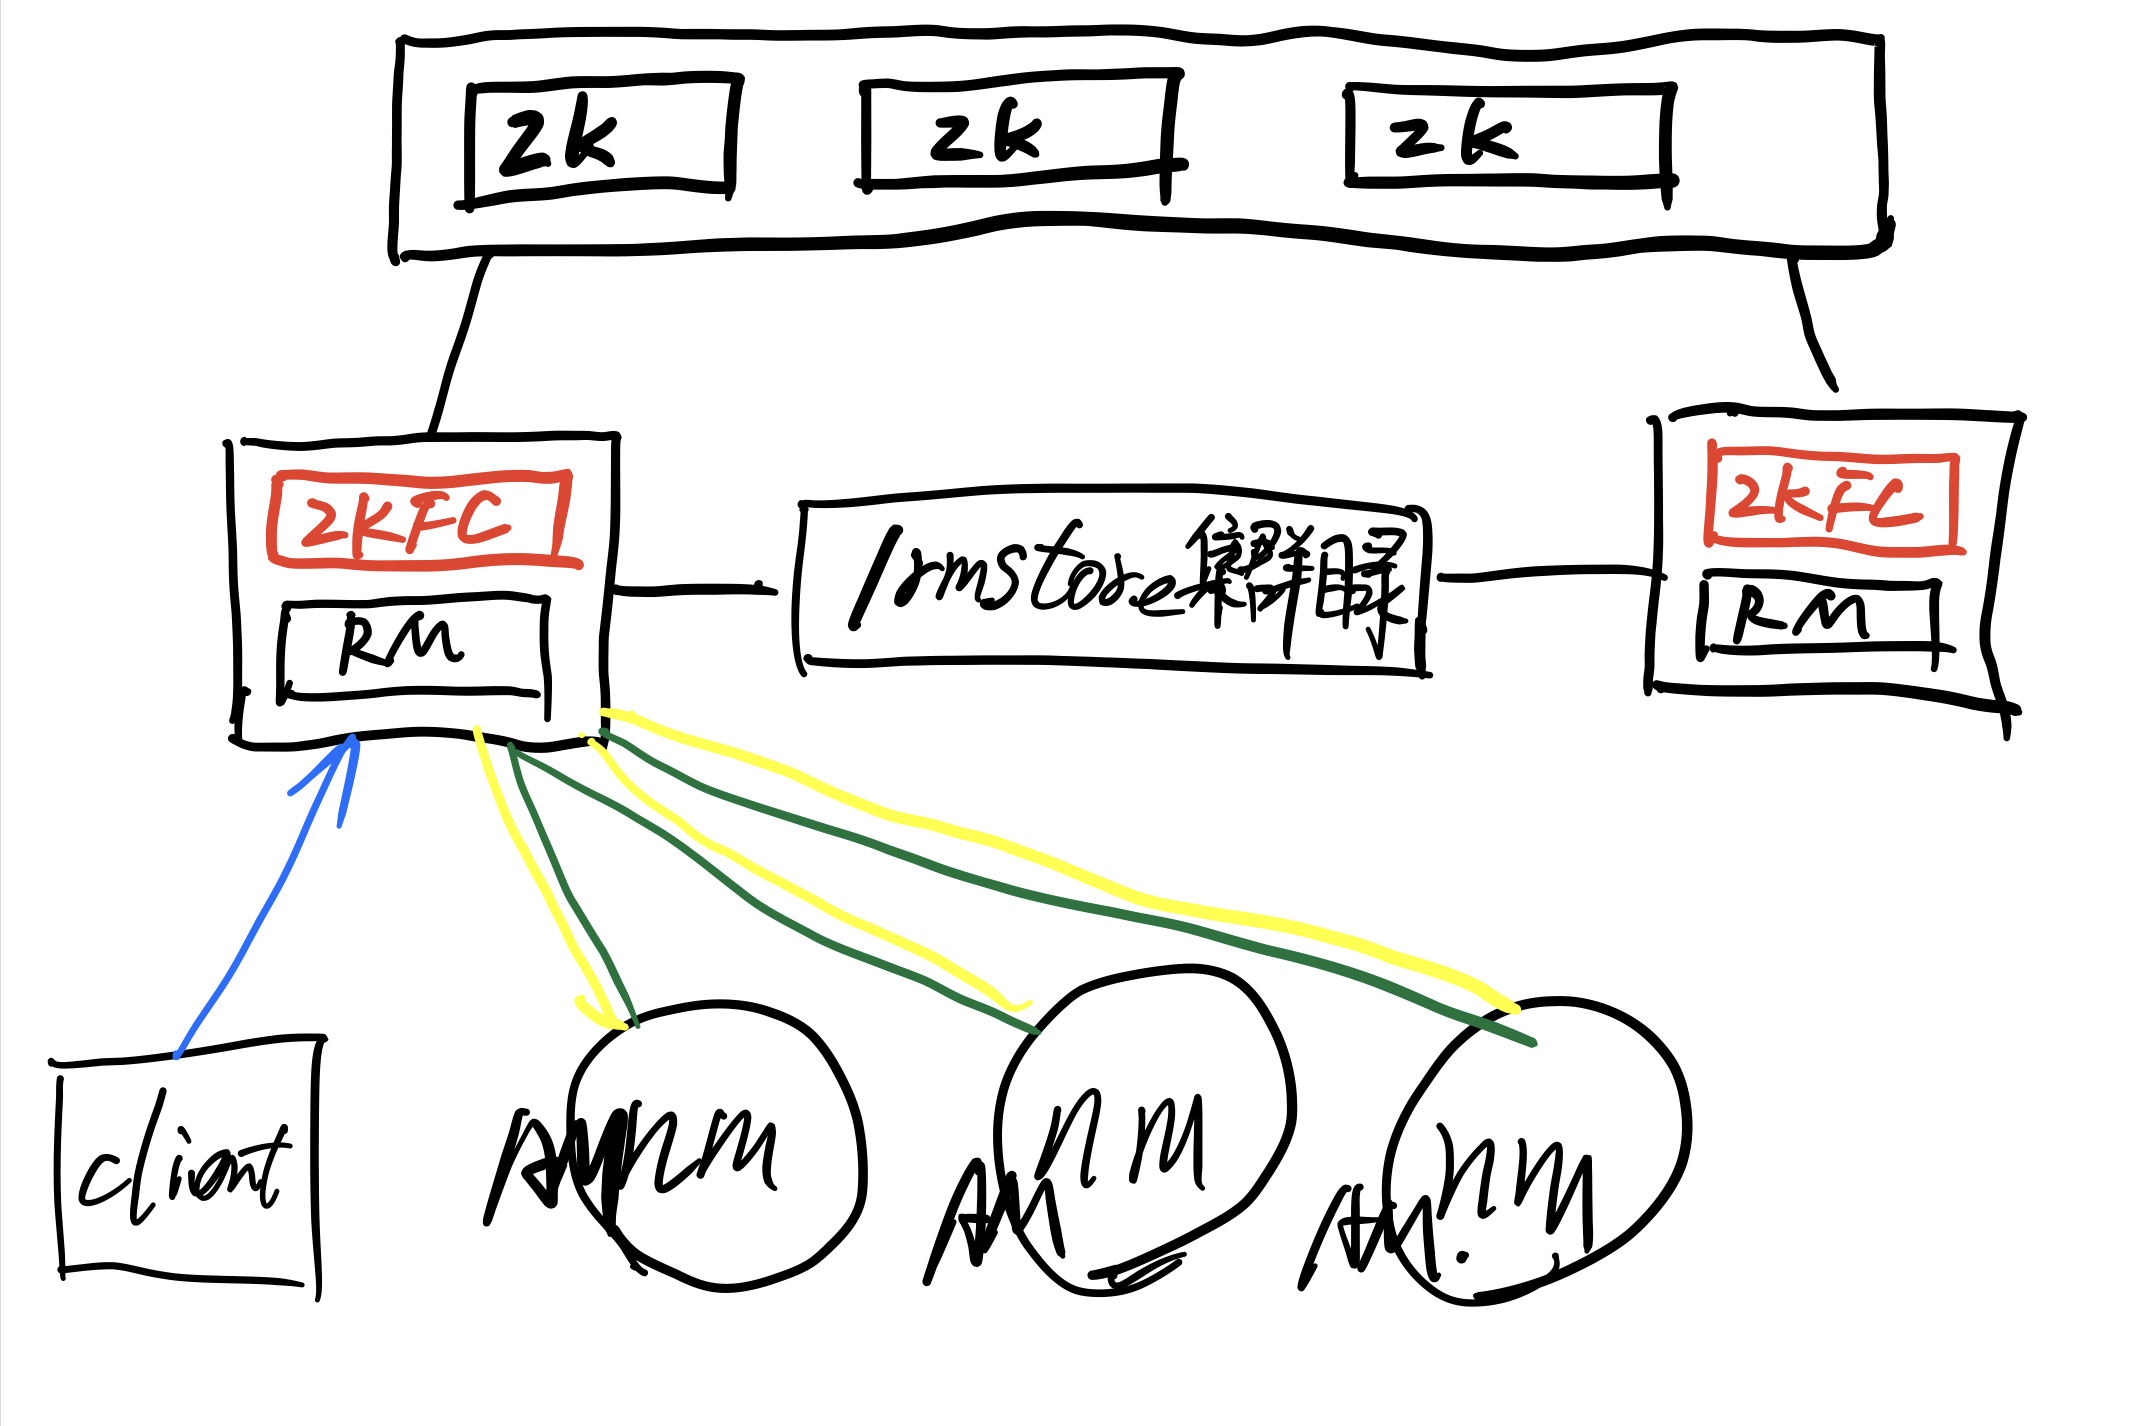 zk
zk
zk
ZKFC
RM
/rmstore
ZKFC
RM
client
AM
nm
AM
nm
AM
nm